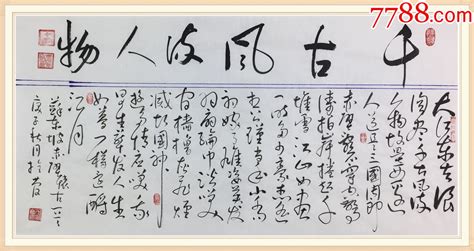 7788.com
千古風流人物
大江东去浪
淘尽千古风流
人物故垒西边
人道是三国周郎
赤壁乱石穿空惊
涛拍岸卷起千
堆雪江山如画
一时多少豪杰遥
想公瑾当年小乔
初嫁了雄姿英发
羽扇纶巾谈笑
间樯橹灰飞烟
灭故国神
游多情应笑我
早生华发人生
如梦一樽还酹
江月
苏东坡赤壁怀古一首
庚子秋月